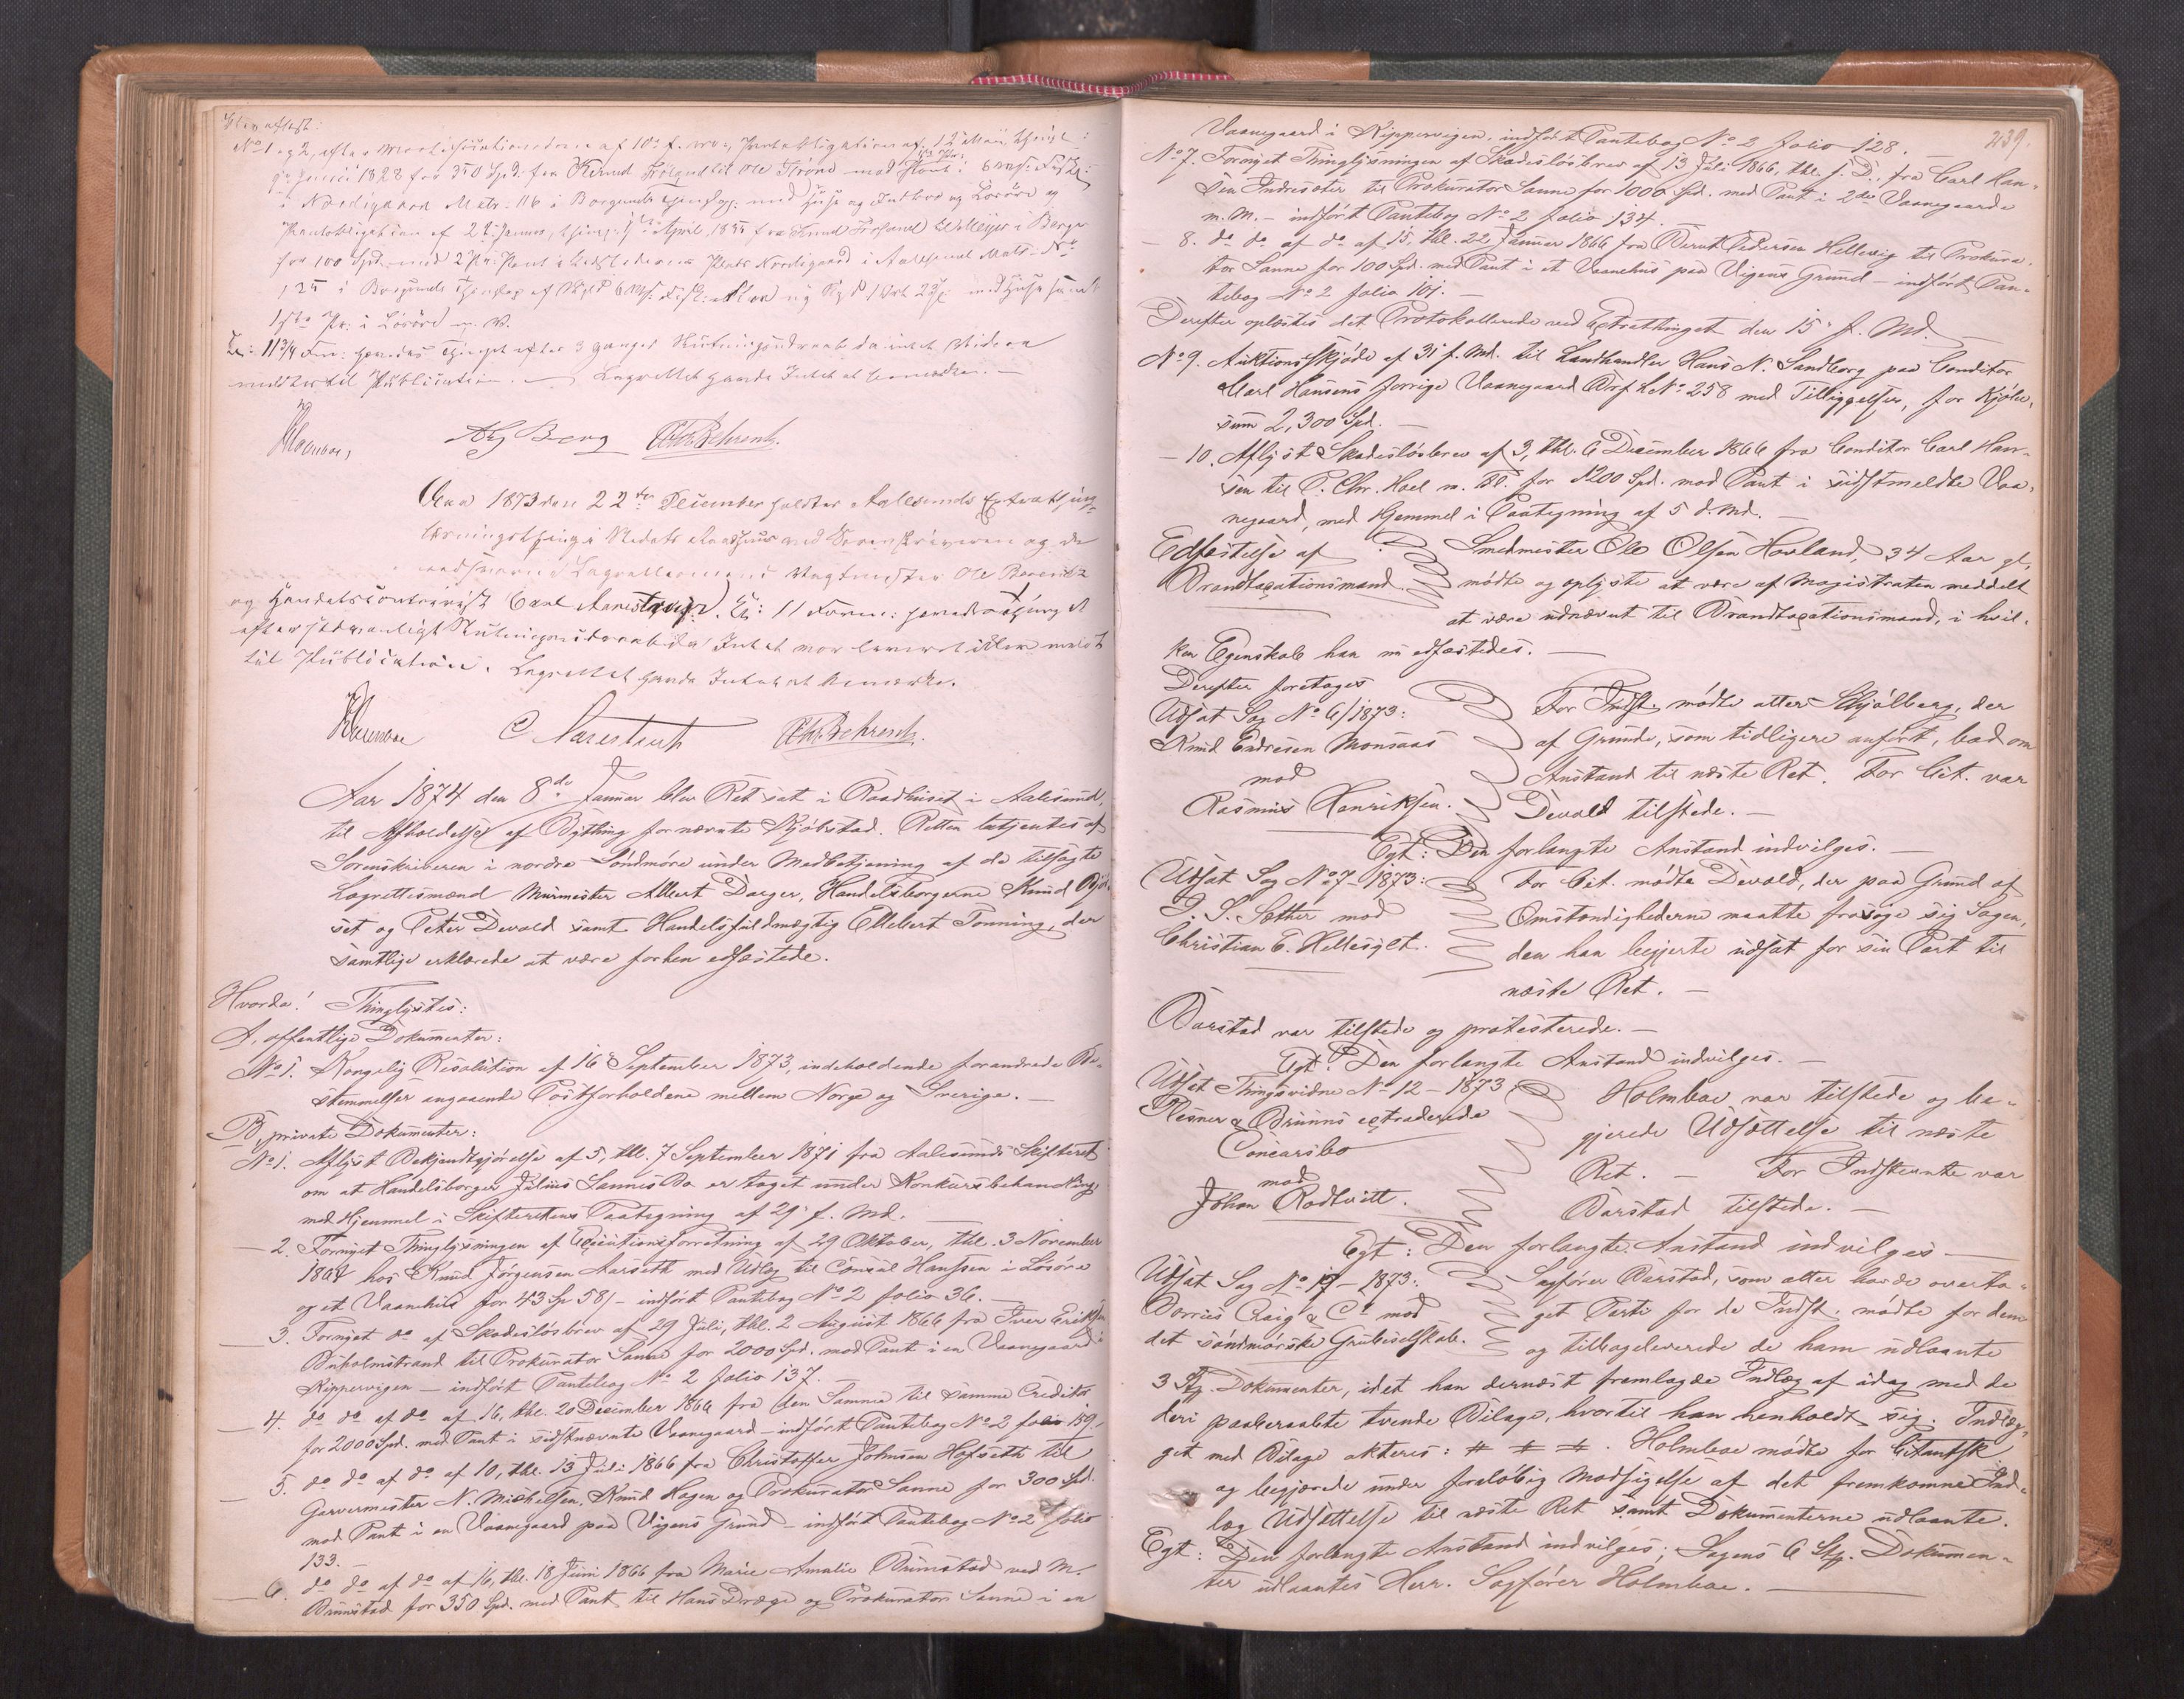 Blev aflæst:
No 1 og 2, efter Mortificationsdom af 10de f. M., Pantobligation af 12 Mai, thingl:
9de Junii 1828 for 350 Spd. fra Knud til Ole med Pant i
i Nørdigaard Matr. 116 i Borgunds med Huse og Indbo og Løsøre og
Pantobligation af 2 Januar, thingl: April 1855 fra Knud i Bergen
for 100 Spd. med 2 Pr: Pant i Plads Nørdigaard i Aalesund Matr. No
125 i Borgunds med Huse samt
1ste Pr: i Løsøre m. V.
Kl: 11 3/4 Fm: hævedes Thinget efter 3 Ganges da intet videre
meldtes til Publication. — Lagrettet havde Intet at bemærke. —
A Berg Behrentz.
Aar 1873 den 22de December holdtes Aalesunds Extrathing
i Stedets Raadhuus ved Sorenskriveren og de
Lagrettesmænd Vagtmester Ole Berentz
og Handelscontorist Carl Aarestrup. Kl: 11 Form: hævedes Thinget
efter sædvanligt da Intet var leveret eller meldt
til Publication. Lagrettet havde Intet at bemærke.
C Aarestrup Behrentz.
Aar 1874 den 8de Januar blev Ret sat i Raadhuset i Aalesund,
til Afholdelse af Bything for nævnte Kjøbstad. Retten betjentes af
Sorenskriveren i nordre Søndmøre under Medbetjening af de tilsagte
Lagrettesmænd Murmester Albert Darger, Handelsborgerne Knud Bjør-
set og Peter Devold samt Handelsfuldmægtig Ellebert Tonning, der
samtlige erklærede at være forhen edfæstede.
Hvorda! Thinglystes:
A, offentlige Dokumenter:
No 1. Kongelig Resolution af 16 September 1873, indeholdende forandrede Be-
stemmelser angaaende Postforholdene mellem Norge og Sverige. —
B, private Dokumenter:
No 1. Aflyst Bekjendtgjørelse af 5, thl. 7 September 1871 fra Aalesunds Skifteret
om at Handelsborger Julius Sannes Bo er taget under Konkursbehandling,
med Hjemmel i Skifterettens Paategning af 29 f. Md.
— 2. Fornyet Thinglysningen af Executionsforretning af 29 Oktober, thl. 3 November
1864 hos Knud Jørgensen Aarseth med Udlæg til Consul Hanssen i Løsøre
og et Vaanehus for 43 Sp 58 / — indført Pantebog No 2 folio 36.
— 3. Fornyet do af Skadesløsbrev af 29 Juli, thl. 2 August 1866 fra Iver Eriksen
Buholmstrand til Prokurator Sanne for 2000 Spd. mod Pant i en Vaanegaard i
Kippervigen — indført Pantebog No 2 folio 137.
— 4. do do af do af 16, thl. 20 December 1866 fra den Samme til samme Creditor
for 2000 Spd. med Pant i sidstnævnte Vaanegaard — indført Pantebog No 2 folio 139.
— 5. do do af do af 10, thl. 13 Juli 1866 fra Christoffer Johnsen Hofseth til
Garvermester N. Michelsen, Knud Hagen og Prokurator Sanne for 300 Spd.
mod Pant i en Vaanegaard paa Vigens Grund — indført Pantebog No 2 folio
133. —
— 6. do do af do af 16, thl. 18 Juni 1866 fra Marie Amalie Brunstad ved M.
Brunstad for 350 Spd. med Pant til Hans Dræge og Prokurator Sanne i en
239.
Vaanegaard i Kippervigen, indført Pantebog No 2 folio 128. —
No 7. Fornyet Thinglysningen af Skadesløsbrev af 13 Juli 1866, thl. s. D., fra Carl Han-
sen Indresæter til Prokurator Sanne for 1000 Spd. med Pant i 2de Vaanegaarde
m. M. — indført Pantebog No 2 folio 134. —
— 8. do do af do af 15, thl. 22 Januar 1866 fra Bernt Pedersen Hellevig til Prokura-
tor Sanne for 100 Spd. med Pant i et Vaanehus paa Vigens Grund — indført Pan-
tebog No 2 folio 101. —
Derefter oplæstes det Protokollerede ved Extrathinget den 15 f. Md. —
No 9. Auktionsskjøde af 31 f. Md. til Landhandler Hans N. Sandborg paa Conditor
Carl Hansens forrige Vaanegaard Brf. L No 258 med Tilliggelser, for Kjøbe-
sum 2,300 Spd. —
— 10. Aflyst Skadesløsbrev af 3, thl. 6 December 1866 fra Conditor Carl Han-
sen til P. Chr. Hoel m. Fl. for 1200 Spd. mod Pant i sidstmeldte Vaa-
negaard, med Hjemmel i Paategning af 5 d. Md. —
Edfæstelse af
Brandtaxationsmand.
Smedmester Ole Olsen Hovland, 34 Aar gl.,
mødte og oplyste at være af Magistraten meddelt
at være udnævnt til Brandtaxationsmand, i hvil-
ken Egenskab han nu edfæstedes. —
Derefter foretoges
Udsat Sag No 6/1873:
Knud Endresen Monsaas
mod
Rasmus Henriksen.
For Indst. mødte atter Skjølberg, der
af Grunde, som tidligere anført, bad om
Anstand til næste Ret. For Cit. var
Devold tilstede. —
Egt: Den forlangte Anstand indvilges. —
Udsat Sag No 7 – 1873:
P. S. Sæther mod
Christian E. Hellesylt.
For Cit. mødte Devold, der paa Grund af
Omstændighederne maatte frasige sig Sagen,
den han begjerte udsat for sin Part til
næste Ret. —
Barstad var tilstede og protesterede. —
Egt: Den forlangte Anstand indvilges. —
Udsat Thingsvidne No 12 – 1873:
Plesner & Brunns extraderede
Concursbo
mod
Johan Rødtvitt.
Holmboe var tilstede og be-
gjerede Udsættelse til næste
Ret. — For Indstevnte var
Barstad tilstede. —
Egt: Den forlangte Anstand indvilges —
Udsat Sag No 17 – 1873:
Borries Craig & Co mod
det søndmørske Grubeselskab.
Sagfører Barstad, som atter havde overta-
get Parti for de Indst. mødte for dem
og tilbageleverede de ham udlaante
3 Stp. Dokumenter, idet han dernæst fremlagde Indlæg af idag med de
deri paaberaabte tvende Bilage, hvortil han henholdt sig. Indlæg-
get med Bilage akteres: # # #. Holmboe mødte for Citantsk.
og begjerede under foreløbig Modsigelse af det fremkomne Ind-
læg Udsættelse til næste Ret samt Dokumenterne udlaante.
Egt: Den forlangte Anstand indvilges; Sagens 6 Stp. Dokumen-
ter udlaantes Herr. Sagfører Holmboe. —